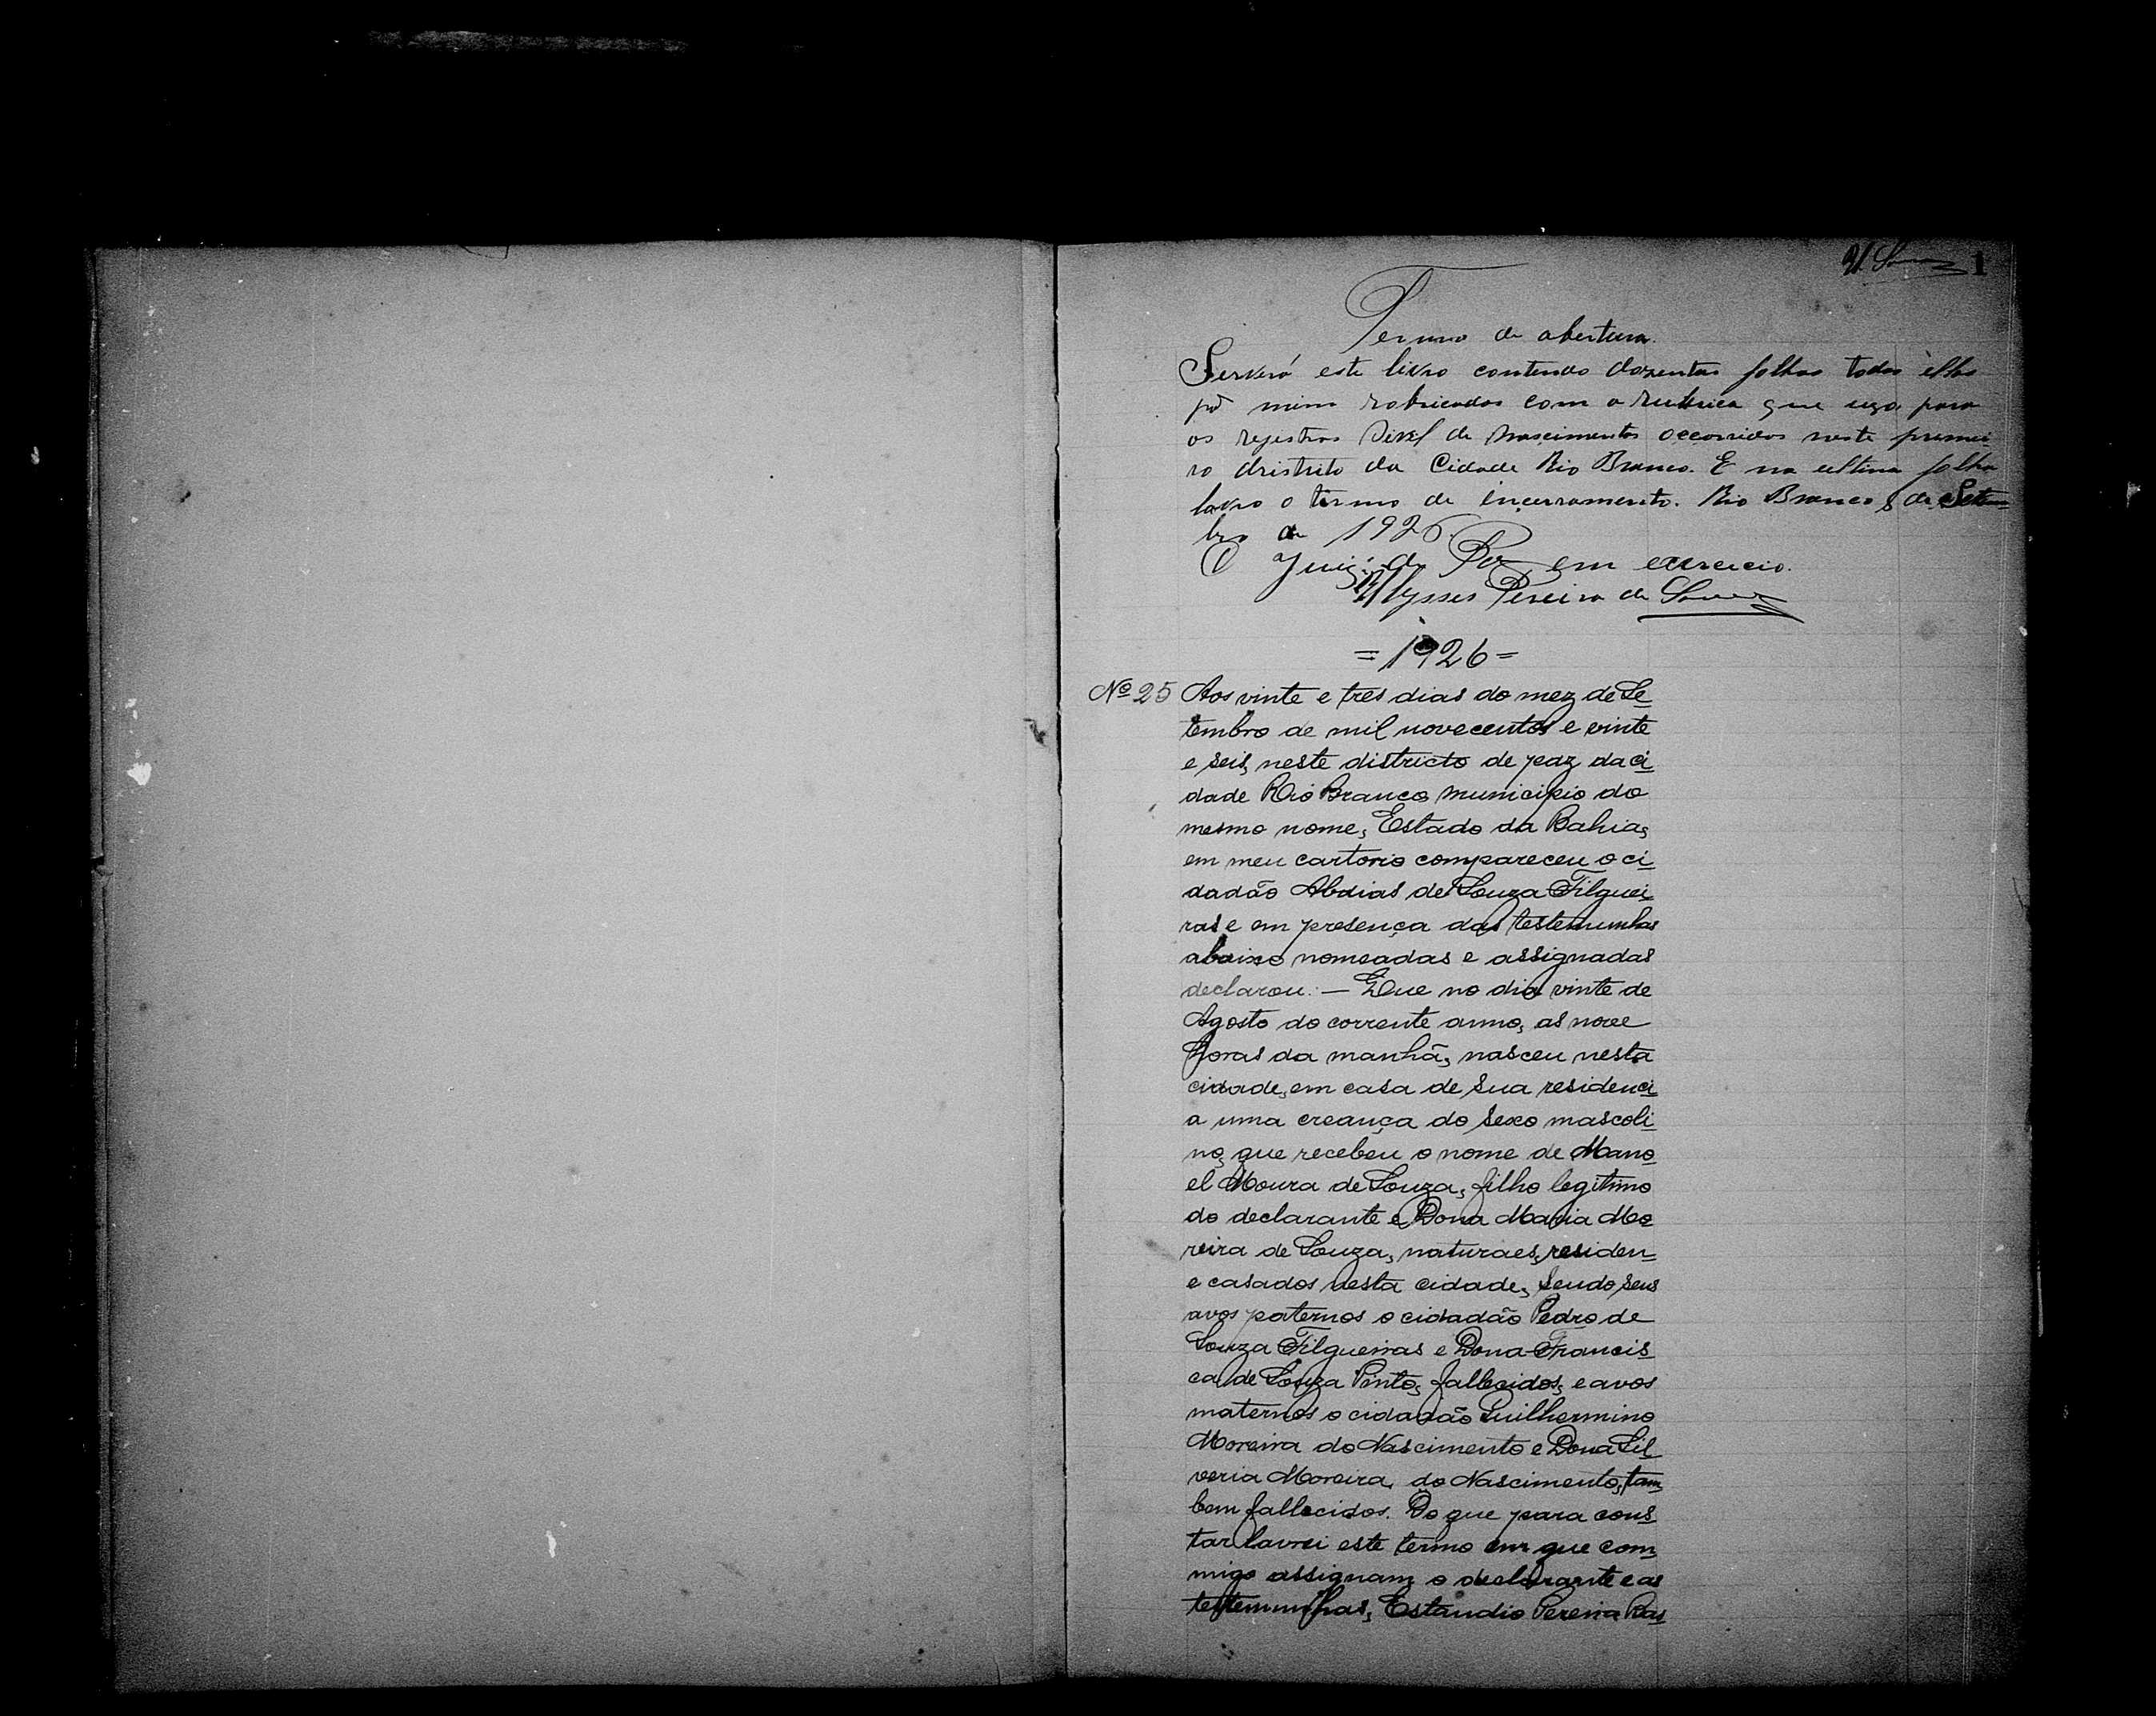 U. Souza 1
Termo de abertura.
Servirá este livro contendo dozentas folhas todas éllas
por mim robricadas com a rubrica que uzo, para
os registros Sivel de nascimentos occorridos neste primei
ro dristrito da Cidade Rio Branco. E na ultima folha
lavro o termo de incerramento. Rio Branco 8 de Setem
bro de 1926.
O Juiz de Paz em exercicio.
Ulysses Pereira de Souza
= 1926 =
Nº 25 Aos vinte e tres dias do mez de Se
tembro de mil novecentos e vinte
e seis, neste districto de paz da ci
dade Rio Branco, municipio do
mesmo nome, Estado da Bahia,
em meu cartorio compareceu o ci
dadão Abdias de Souza Filguei
ras e em presença das testemunhas
abaixo nomeadas e assignadas
declarou: — Que no dia vinte de
Agosto do corrente anno, as nove
horas da manhã, nasceu nesta
cidade, em casa de sua residenci
a uma creança do sexo mascoli
no, que recebeu o nome de Mano
el Moura de Souza, filho legitimo
do declarante e Dona Maria Mo
reira de Souza, naturaes, residen
e casados nesta cidade, sendo seus
avos paternos o cidadão Pedro de
Souza Filgueiras e Dona Francis
ca de Souza Pinto, fallecidos, e avos
maternos o cidadão Guilhermino
Moreira do Nascimento e Dona Sil
veria Moreira do Nascimento, tam
bem fallecidos. Do que para cons
tar lavrei este termo em que com
migo assignam o declarante e as
testemunhas, Estandio Pereira Ras